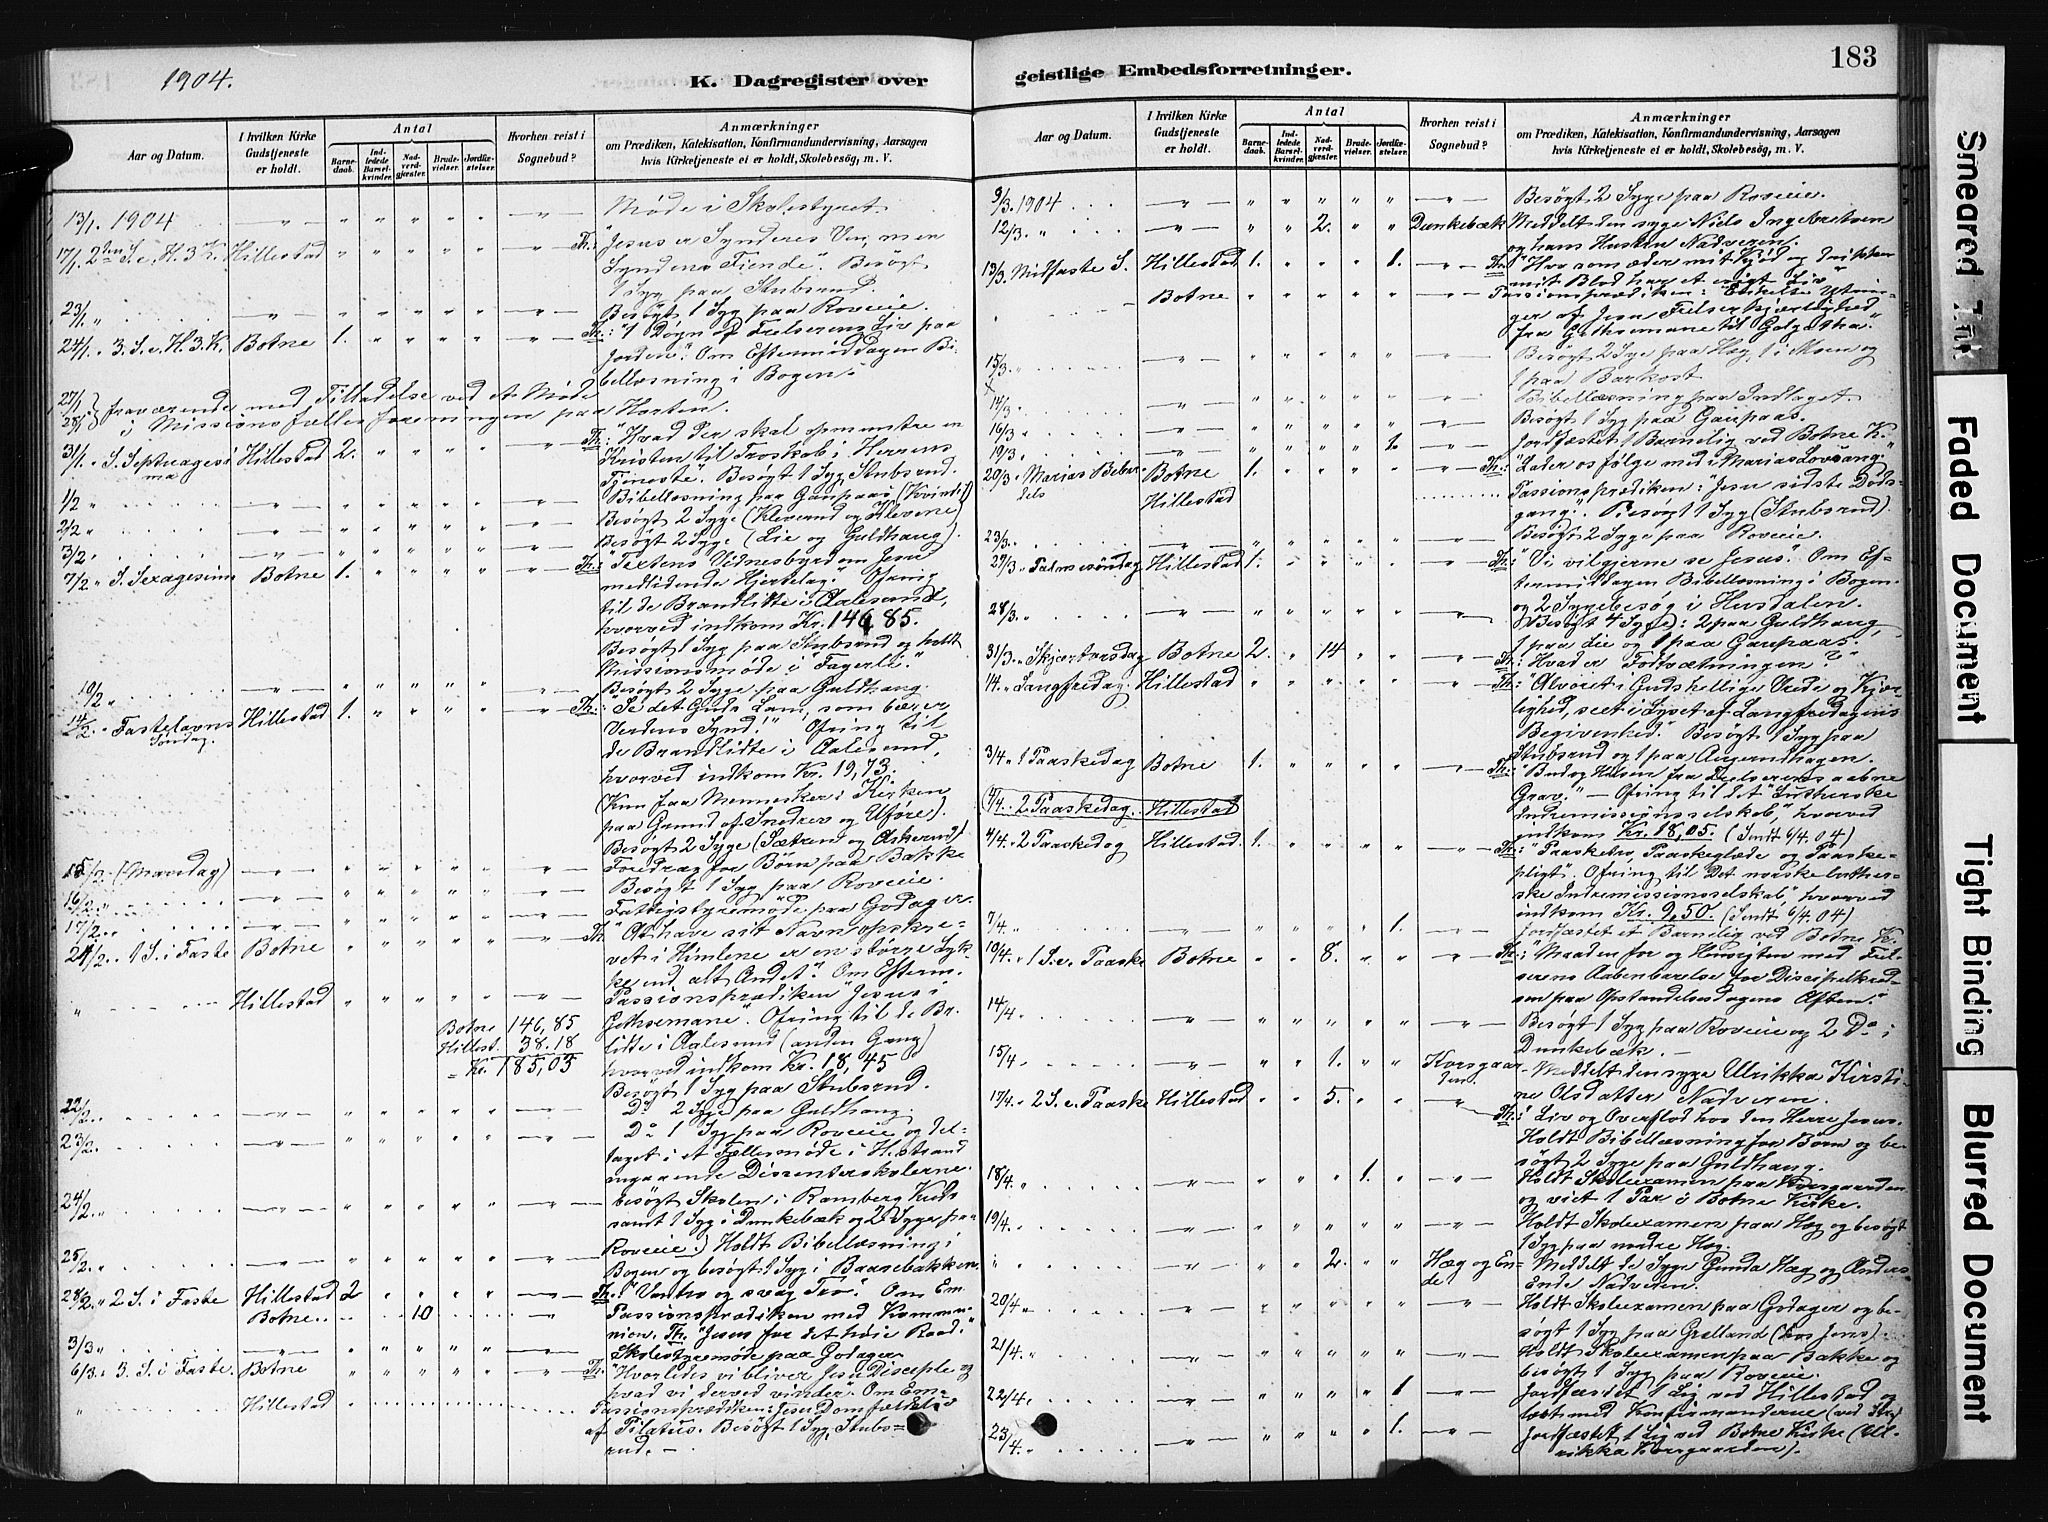 1904.
K. Dagregister over
Aar og Datum.
I hvilken Kirke Gudstjeneste er holdt.
Antal
Barnedaab.
Indledede Barselkvinder.
Nadverdgjæster.
Brudevielser.
Jordfæstelser.
Hvorhen reist i Sognebud?
Anmærkninger
om Prædiken, Katekisation, Konfirmandundervisning, Aarsagen
hvis Kirketjeneste ei er holdt, Skolebesøg, m. V.
13/1 1904 Møde i Skolestyret.
17/1 2den S. e. H. 3 K. Hillestad Th: "Jesus er Synderes Ven, men
Syndens Fiende". Besøgt
1 Syg paa Stubsrud.
23/1 " Besøgt 1 Syg paa Roveie.
24/1 " 3. S. e. H. 3 K. Botne 1. Th: "1 Døgn af Frelserens Liv paa
Jorden". Om Eftermiddagen Bi-
bellæsning i Bogen.
27/1 28/1 } fraværende med Tilladelse ved et Møde
i Missionsfællesforeningen paa Horten.
31/1 " S. Septuagesima Hillestad 2. Th: "Hvad der skal opmuntre en
Kristen til Troskab i Herrens
Tjeneste". Besøgt 1 Syg Stubsrud.
1/2 " Bibellæsning paa Gaupaas (Kvindef)
2/2 " Besøgt 2 Syge (Kleverud og Klevene)
3/2 " Besøgt 2 Syge (Lie og Guldhaug)
7/2 " S. Sexagesima Botne 1. Th: "Textens Vidnesbyrd om Jesu
medlidende Hjertelag." Ofring
til de Brandlidte i Aalesund,
hvorved indkom Kr. 146,85.
Besøgt 1 Syg paa Stubsrud og holdt
Missionsmøde i Fagerli."
10/2 " Besøgt 2 Syge paa Guldhaug.
14/2 " Fastelavns Søndag. Hillestad 1. Th: "Se det Guds Lam, som bærer
Verdens Synd!" Ofring til
de Brandlidte i Aalesund,
hvorved indkom Kr. 19,73.
(Kun faa Mennesker i Kirken
paa Grund af Snedrev og Uføre).
Besøgt 2 Syge (Sætren og Askerud)
15/2. (Mandag) Foredrag for Børn paa Bakke
16/2 " Besøgt 1 Syg paa Roveie.
17/2 " Fattigstyremøde paa Godager
21/2 " 1 S. i Faste Botne Th: "At have sit Navn opskre-
vet i Himlene er en større Lyk-
ke end alt Andet." Om Efterm.
" Hillestad Passionsprædiken "Jesus i
Gethsemane". Ofring til de Br.
lidte i Aalesund (anden Gang)
hvorved indkom Kr. 18,45
Botne 146,85
Hillest. 38.18
Kr. 185,03
Besøgt 1 Syg paa Stubsrud.
22/2. Do 2 Syge paa Guldhaug.
23/2. Do 1 Syg paa Roveie og del-
taget i et Fællesmøde i H.strand
angaaende Dissenterskolerne.
24/2 " besøgt Skolen i Ramberg Kreds
samt 1 Syg i Dunkebæk og 2 Syge paa
Roveie.) Holdt Bibellæsning i
25/2. " Bogen og besøgt 1 Syg i Baasebakken.
28/2. " 2 S. i Faste Hillestad 2 Th: "Vantro og svag Tro". Om Em.
Botne. 10 Passionsprædiken med Kommu-
nion. Th. "Jesus for det høie Raad."
3/3 " Skolestyremøde paa Godager
6/3. " 3. S. i Faste. Botne Th: "Hvorledes vi bliver Jesu Disciple og
hvad vi derved vinder". Om Em.
" Hillestad Passionsprædiken: Jesu Domfældelse
af Pilatus. Besøgt 1 Syg Stubs-
rud. —
183
geistlige Embedsforretninger.
Aar og Datum.
I hvilken Kirke Gudstjeneste er holdt.
Antal
Barnedaab.
Indledede Barselkvinder.
Nadverdgjæster.
Brudevielser.
Jordfæstelser.
Hvorhen reist i Sognebud?
Anmærkninger
om Prædiken, Katekisation, Konfirmandundervisning, Aarsagen
hvis Kirketjeneste ei er holdt, Skolebesøg, m. V.
9/3. 1904 Besøgt 2 Syge paa Roveie.
12/3. " 2. Dunkebæk Meddelt den syge Niels Ingebretsen
og hans Hustru Nadveren.
13/3 Midfaste S. Hillestad 1. 1. Th: "Hvo som æder mit Kjød og drikker
mit Blod har et evigt Liv"
Botne Passionsprædiken: "Enkelte Ytrin-
ger af Jesu Frelserkjærlighed
fra Gethsemane til Golgatha."
15/3. Besøgt 2 Syge paa Hæg, 1 i Moen og
1 paa Barkost
14/3 Bibellæsning paa Indlaget.
16/3 Besøgt 1 Syg paa Gaupaas.
19/3 1. Jordfæstet 1 Barnelig ved Botne K.
20/3 " Marias Bebudels Botne 1. Th: "Lader os følge med i Marias Lovsang."
Hillestad Passionsprædiken: "Jesu sidste Døds-
gang". Besøgt 1 Syg (Stubsrud).
23/3. Besøgt 2 Syge paa Roveie.
27/3 " Palmesøndag Hillestad 1. Th: "Vi vil gjerne se Jesus". Om Ef-
termiddagen Bibellæsning i Bogen
og 2 Sygebesøg i Husdalen.
28/3. " Besøgt 4 Syge: 2 paa Guldhaug,
1 paa Lie og 1 paa Gaupaas.
31/3 " Skjærtorsdag Botne 2. 14 Th: "Hvad er Fodtvætningen?"
1/4. " Langfredag. Hillestad Th: "Alvoret i Guds hellige Vrede og Kjær-
lighed, seet i Lyset af Langfredagens
Begivenhed." Besøgt 1 Syg paa
Stubsrud og 1 paa Augerudhagen.
3/4 " 1 Paaskedag Botne 1. Th: "Budog Hilsen fra Frelserens aabne
Grav." — Ofring til det "Lutherske
Indremissionsselskab," hvorved
indkom Kr. 18,05. (Sendt 6/4. 04)
4/4. 2 Paaskedag. Hillestad
4/4. 2 Paaskedag Hillestad 1. Th: "Paasketro, Paaskeglæde og Paaske-
pligt". Ofring til Det norske luther-
ske Indremissionsselskab," hvorved
indkom Kr. 9,50. (Sendt 6/4. 04)
7/4. 1. Jordfæstet et Barnelig ved Botne K.
10/4. " 1 S. e. Paaske Botne 8. Th: "Maaden for og Hensigten med Frel-
serens Aabenbarelse for Discipelkred-
sen paa Opstandelsesdagens Aften."
14/4. Besøgt 1 Syg paa Roveie og 2 Do i
Dunkebæk. —
15/4. 1. Korsgaarden. Meddelt den syge Ulrikka Kirsti-
ne Olsdatter Nadveren.
17/4. " 2 S. e. Paaske Hillestad 5. Th: Liv og Overflod hos den Herre Jesus.
Holdt Bibellæsning for Børn og be-
søgt 2 Syge paa Guldhaug.
18/4. " 1 Holdt Skoleexamen paa Korsgaarden
og viet 1 Par i Botne Kirke.
19/4. Holdt Skoleexamen paa Hæg og besøgt
1 Syg paa nordre Hæg.
" 2. Hæg og Ende. Meddelt de Syge Gunda Hæg og Anders
Ende Nadveren.
20/4 " Holdt Skoleexamen paa Godager og be-
søgt 1 Syg paa Grølland (Lars Jens).
21/4 " Holdt Skoleexamen paa Bakke og
besøgt 1 Syg paa Roveie.
22/4. 1 Jordfæstet 1 Lig ved Hillestad og
læst med Konfirmanderne
23/4. " 1. Jordfæstet 1 Lig ved Botne Kirke (Ul-
rikka Korsgaarden).
Smeared Ink
Faded Document
Tight Binding
Blurred Document